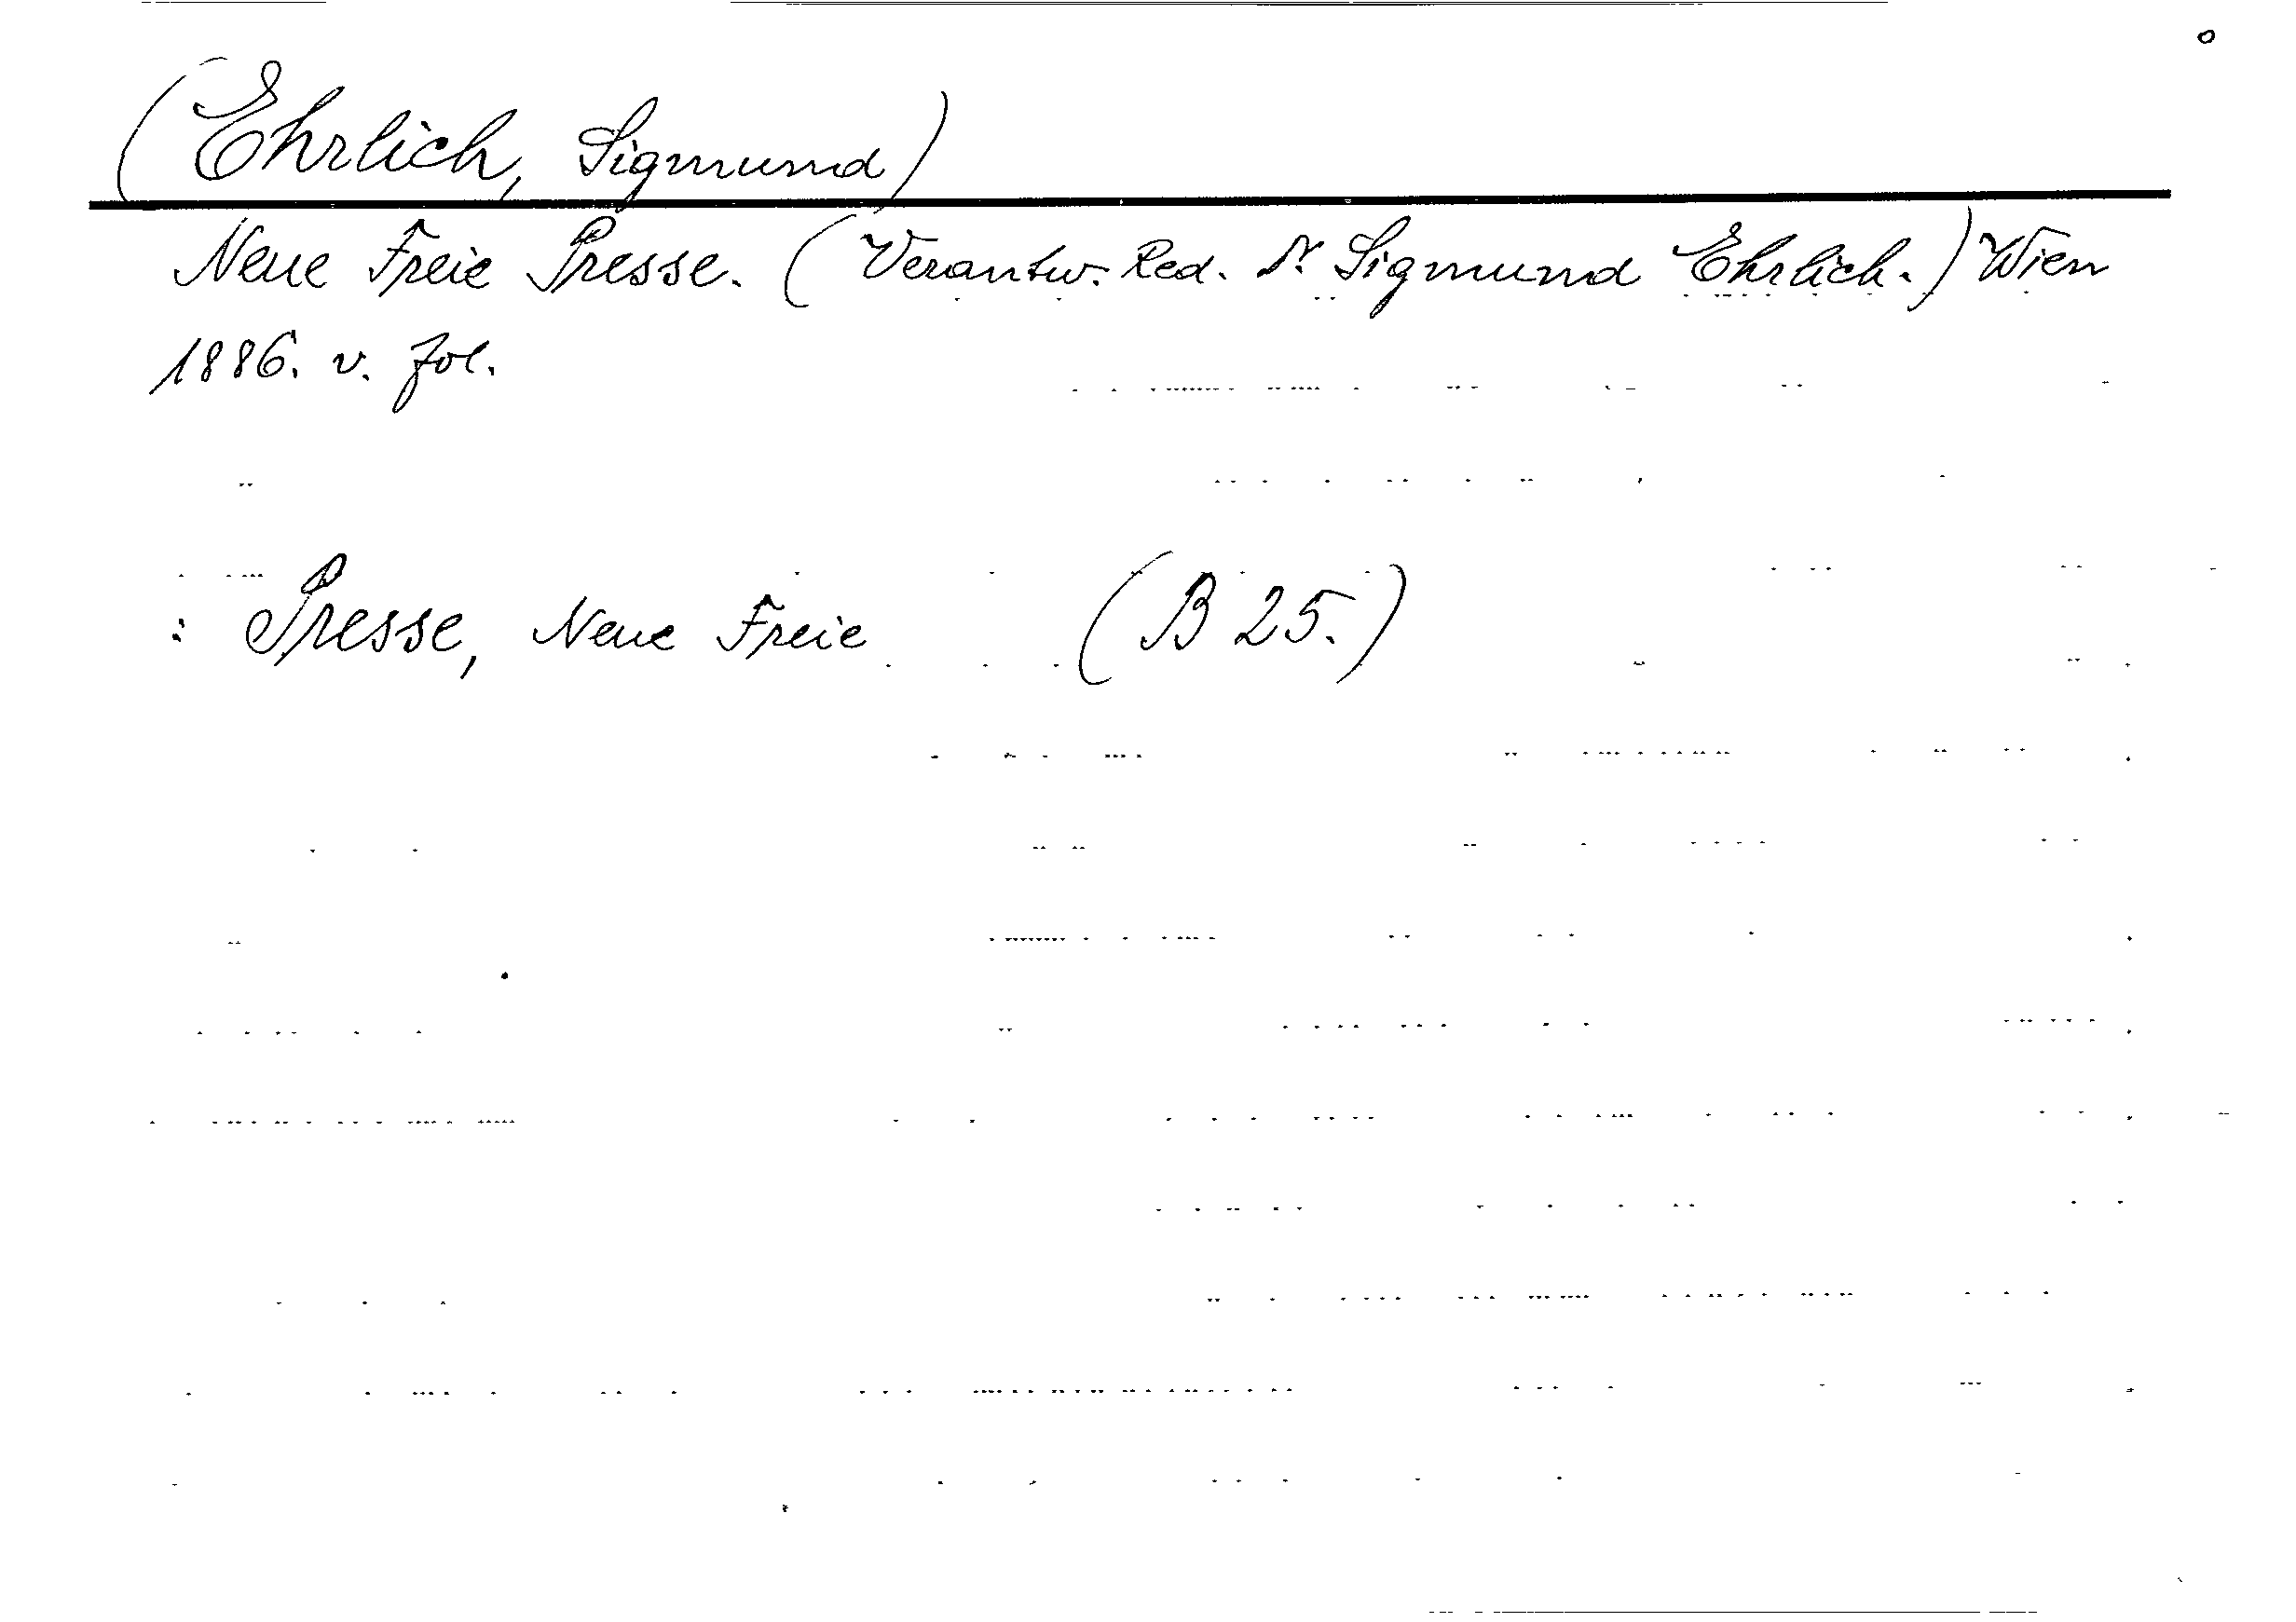 (Ehrlich, Sigmund)
Neue Freie Presse. (Verantw. Red. Dr. Sigmund Ehrlich.) Wien
1886. v. fol.
: Presse, Neue Freie (B 25.)